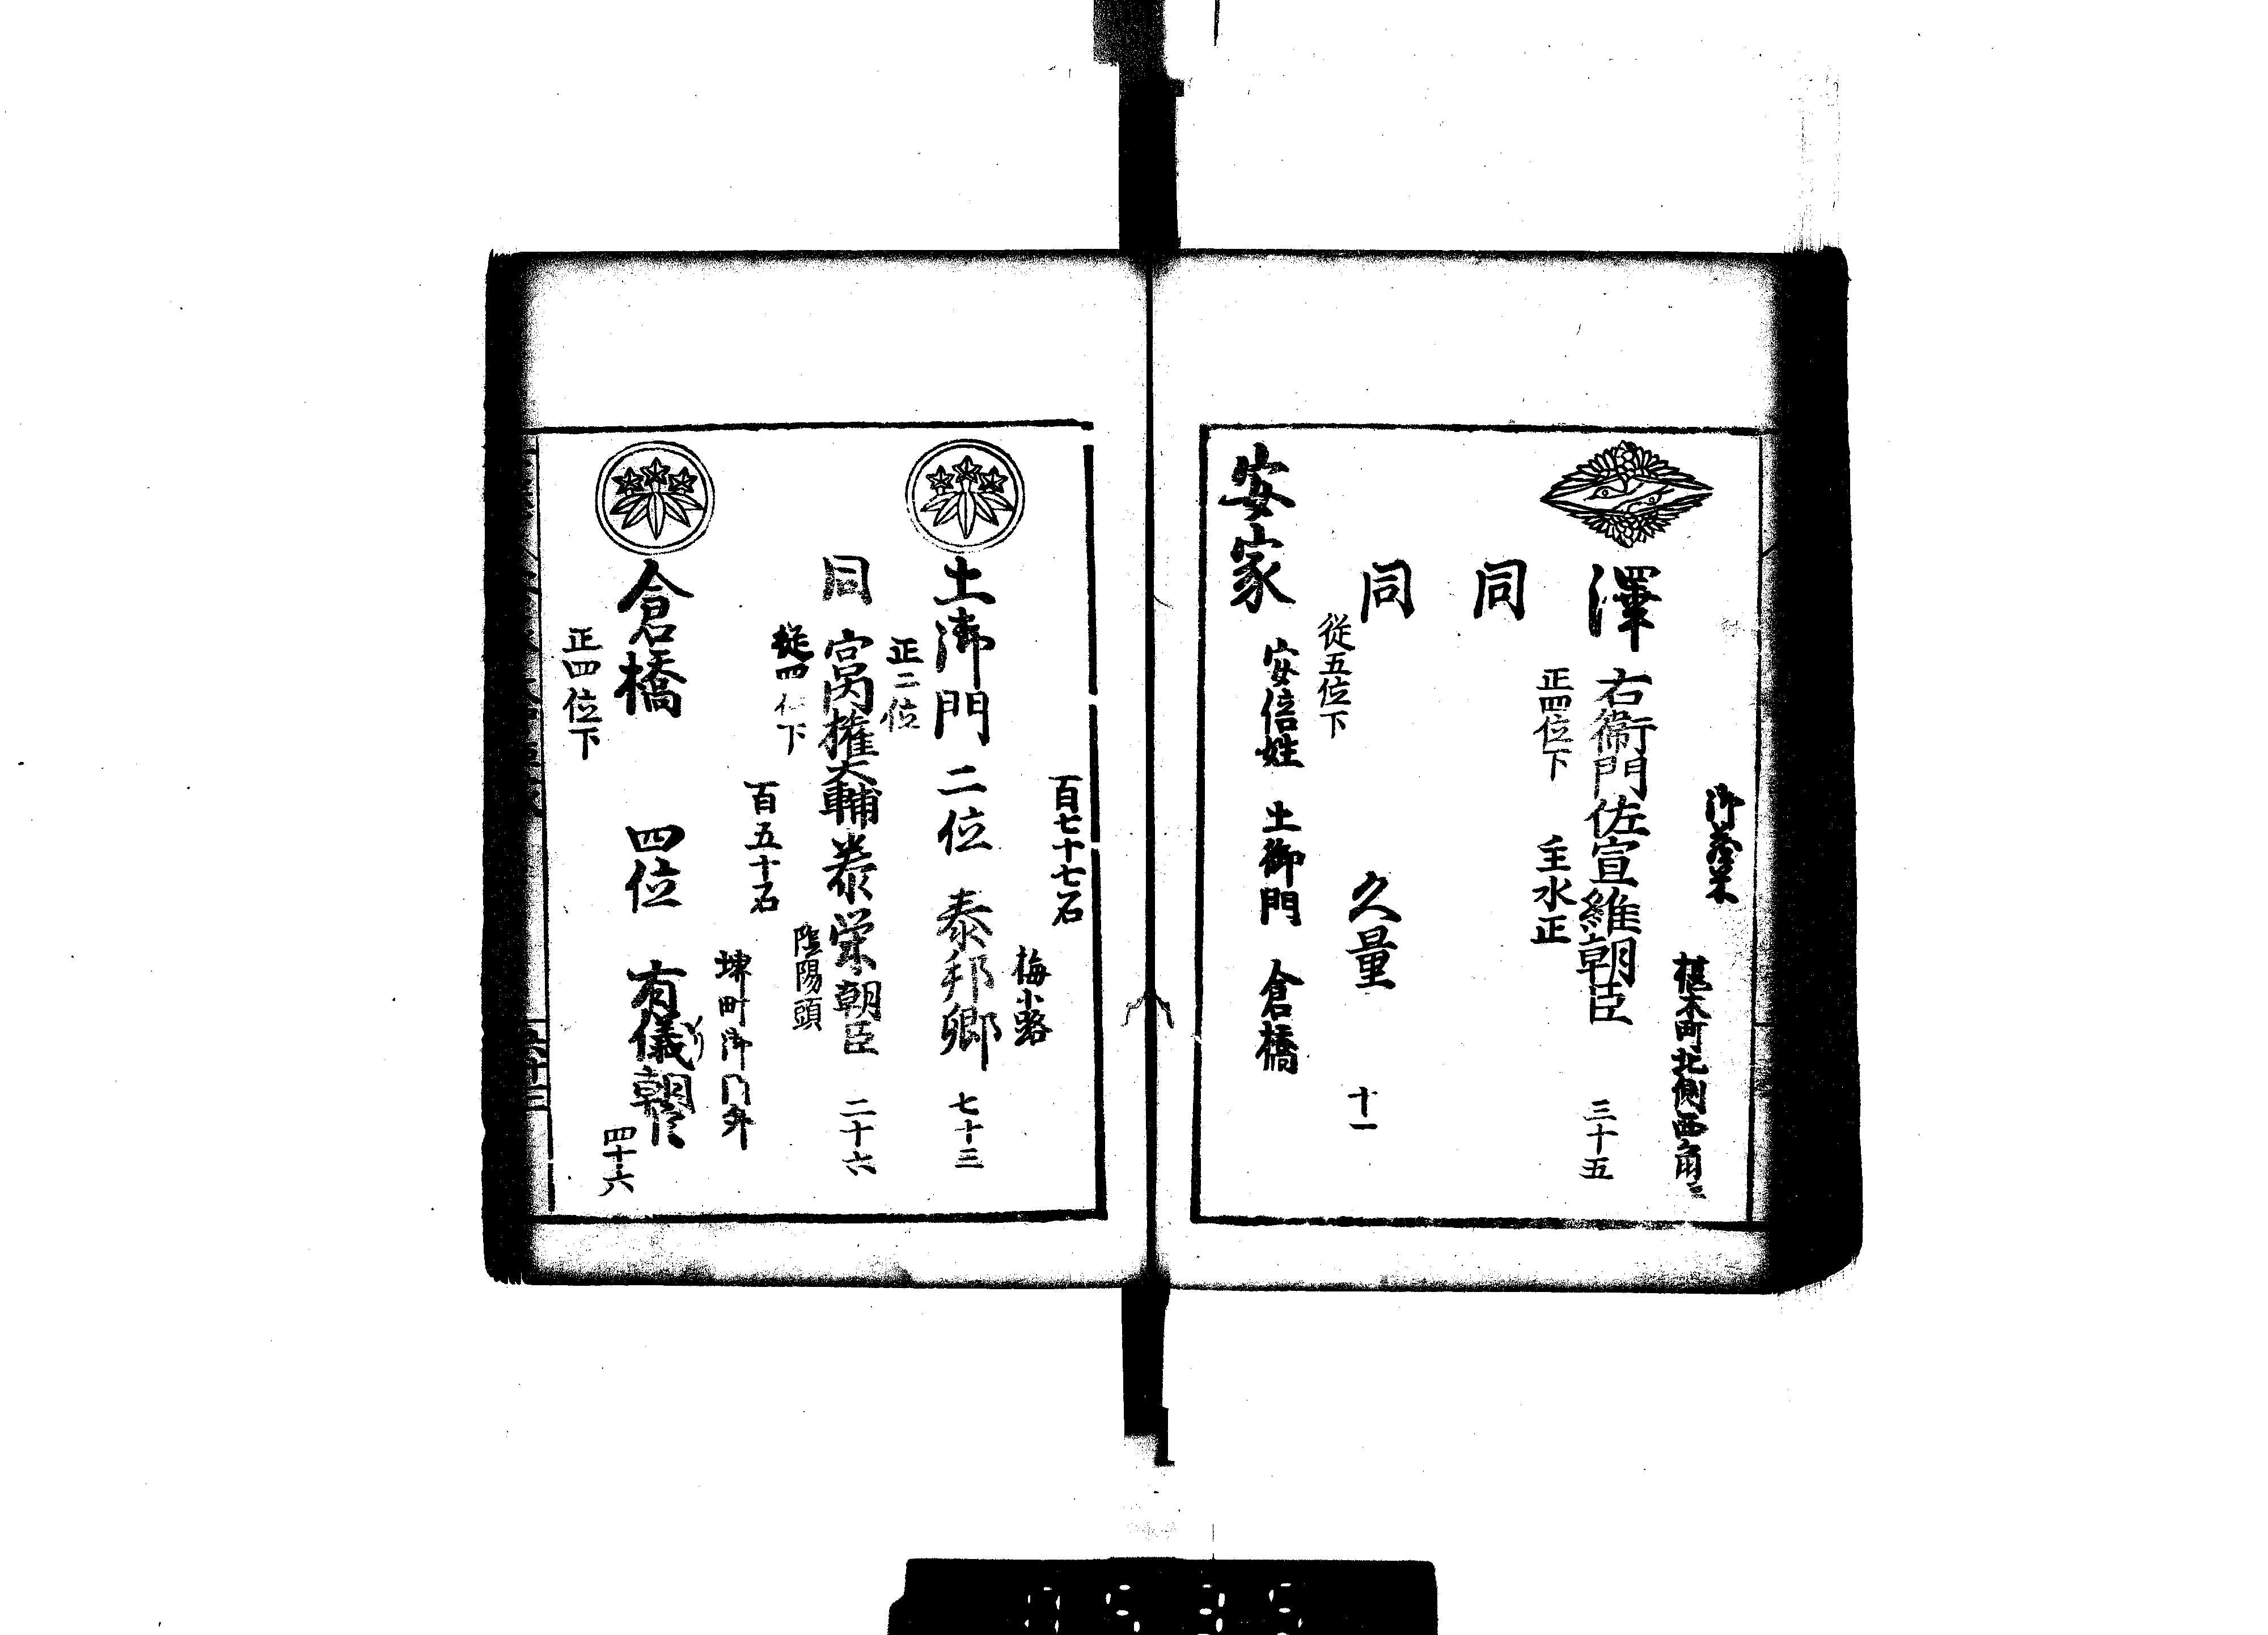 御蔵米
椹木町北側西角
澤 右衛門佐宣維朝臣 三十五
正四位下 主水正
同
同 久量 十一
從五位下
安家 安倍姓 土御門 倉橋
百七十七石 梅小路
土御門 二位 泰邦卿 七十三
正二位
同 宮内權大輔泰栄朝臣 二十六
從四位下 陰陽頭
百五十石 堺町御門外
倉橋 四位 有儀朝臣 四十六
正四位下